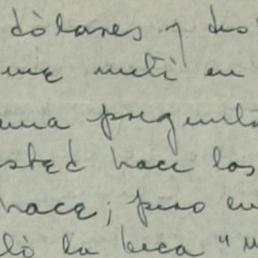 dòlares y dos
me metí en
una pregunta
usted hace las
hace; pero en
lò la beca "M